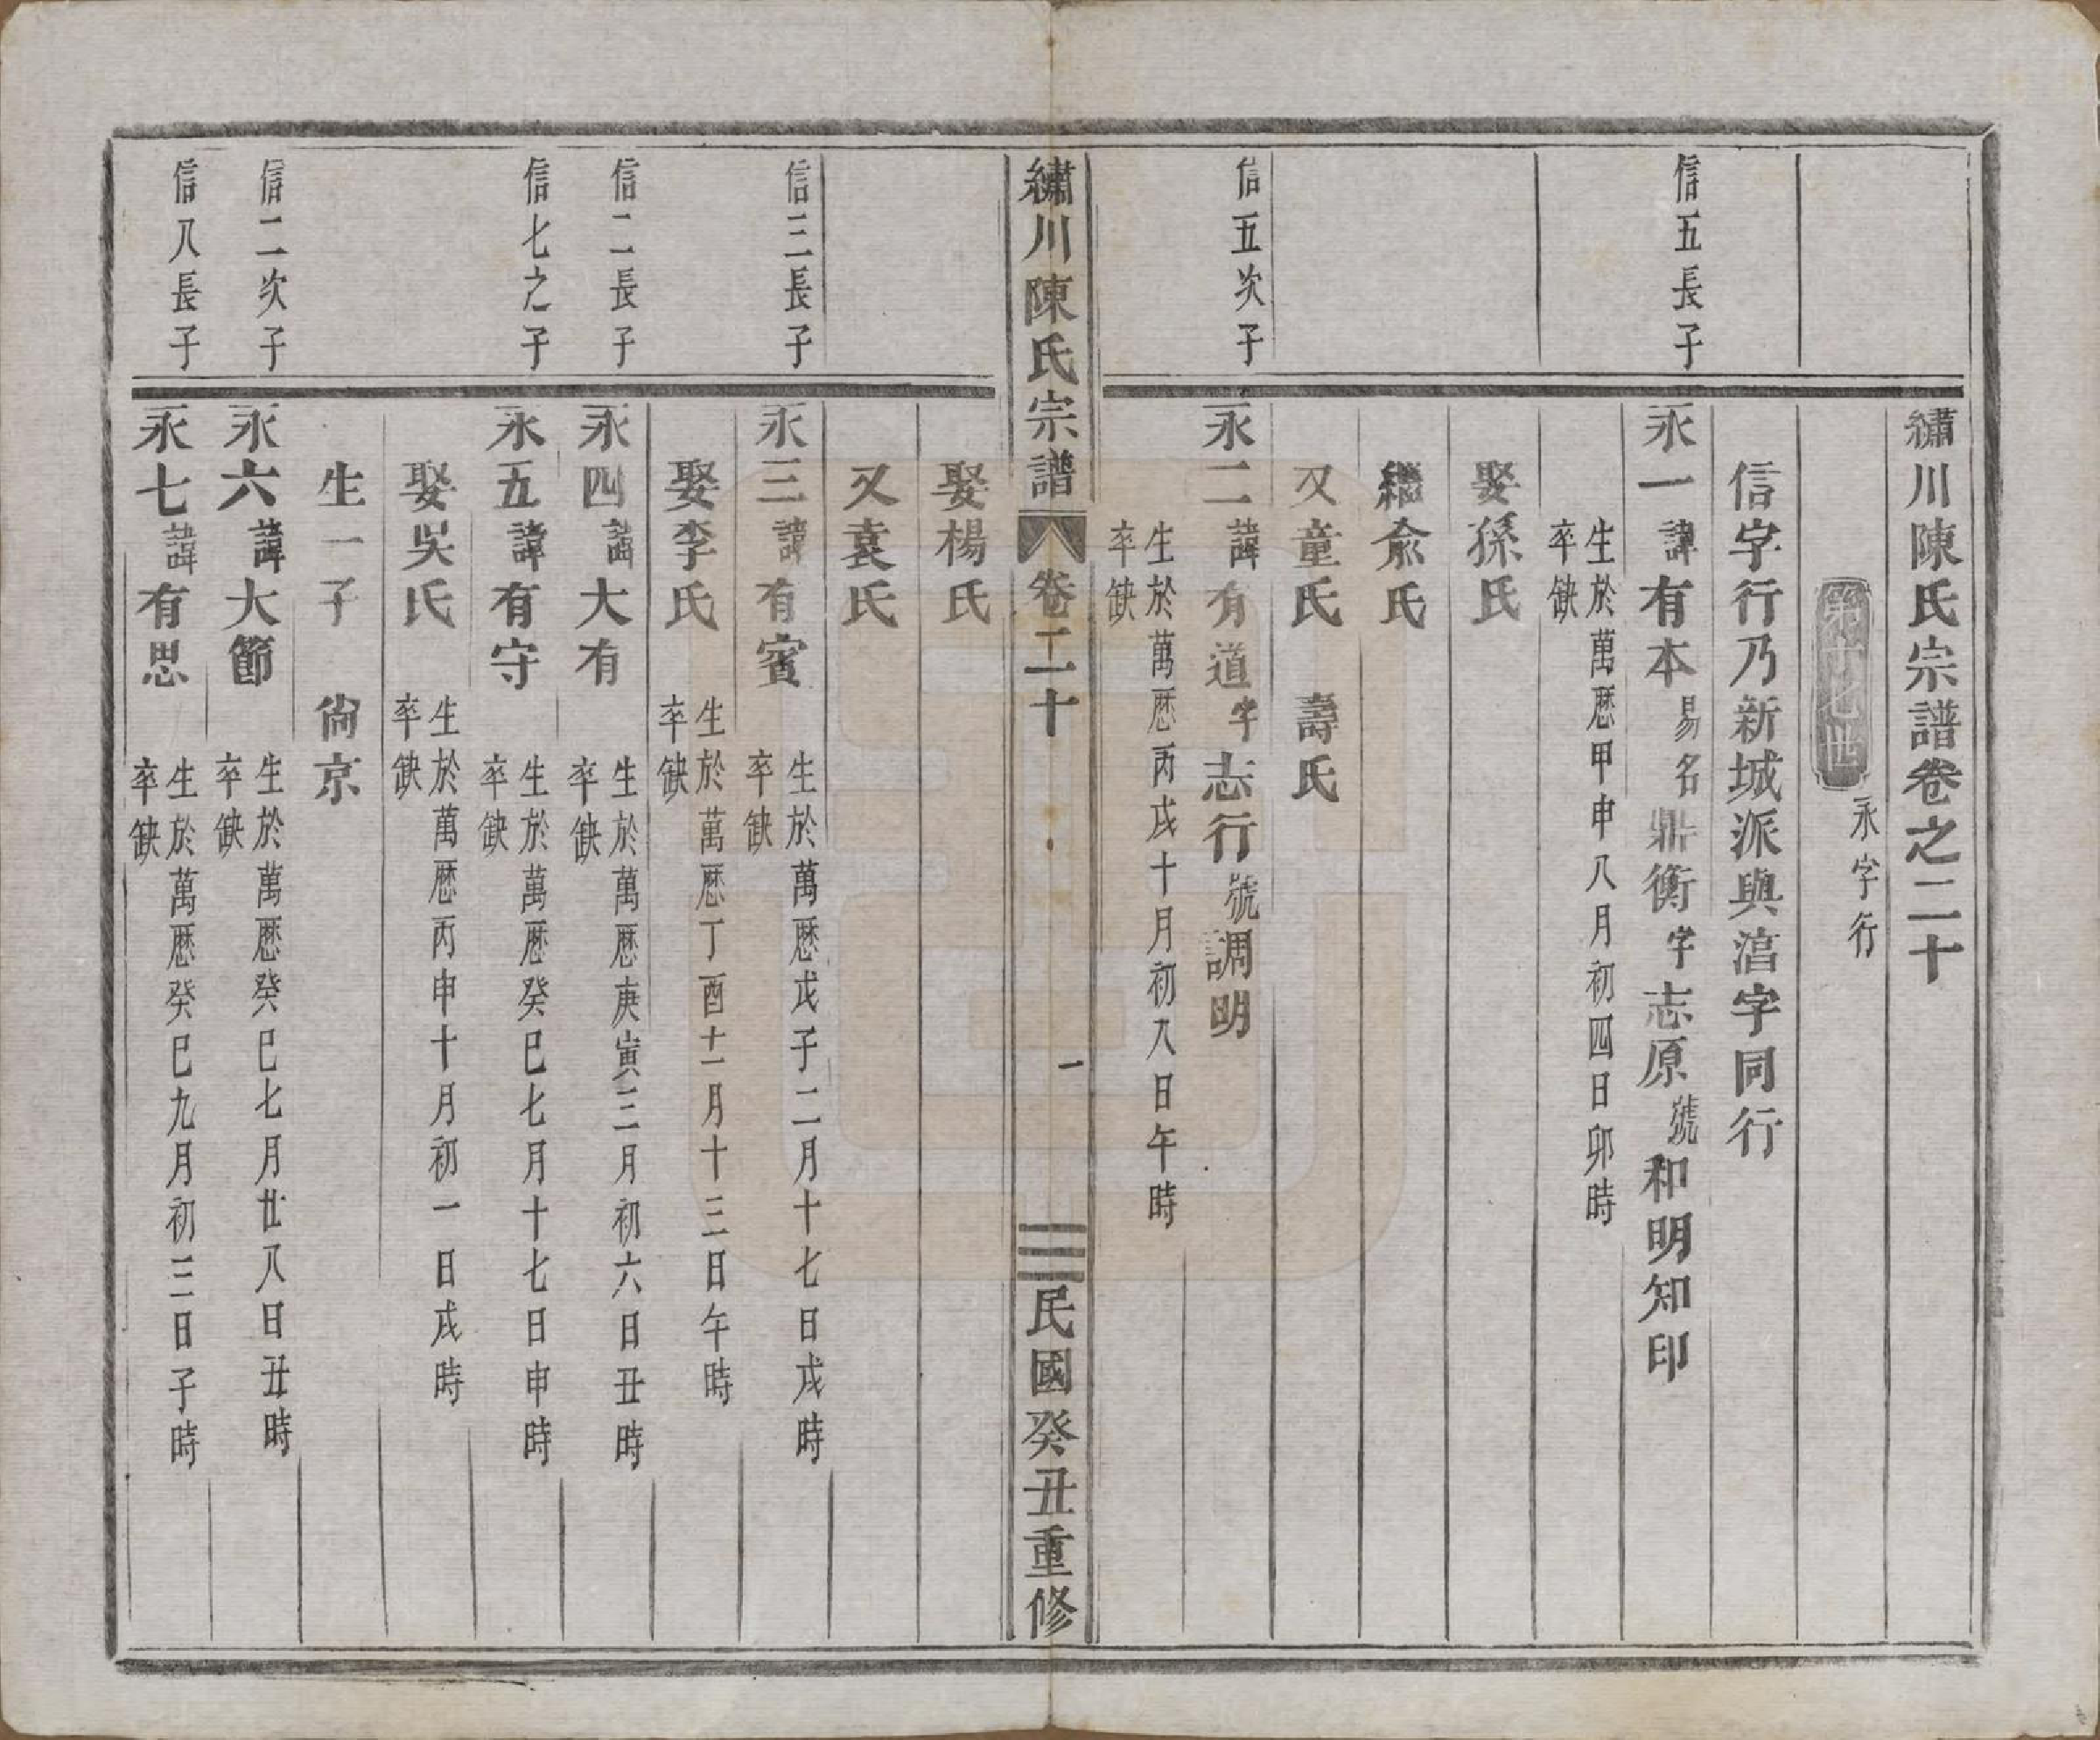 繡川陳氏宗譜卷之二十
第十七世 永字行
信字行乃新城派與涫字同行
信五長子
永一諱有本易名鼎衡字志原號和明知印
生於萬歷甲申八月初四日卯時
卒缺
娶孫氏
繼俞氏
又童氏 壽氏
信五次子
永二諱有道字志行號調明
生於萬歷丙戌十月初八日午時
卒缺
繡川陳氏宗譜 卷二十 一 民國癸丑重修
娶楊氏
又袁氏
信三長子
永三諱有賓
生於萬歷戊子二月十七日戌時
卒缺
娶李氏
生於萬歷丁酉十一月十三日午時
卒缺
信二長子
永四諱大有
生於萬歷庚寅三月初六日丑時
卒缺
信七之子
永五諱有守
生於萬歷癸巳七月十七日申時
卒缺
娶吳氏
生於萬歷丙申十月初一日戌時
卒缺
生一子 尙京
信二次子
永六諱大節
生於萬歷癸巳七月廿八日丑時
卒缺
信八長子
永七諱有思
生於萬歷癸巳九月初三日子時
卒缺